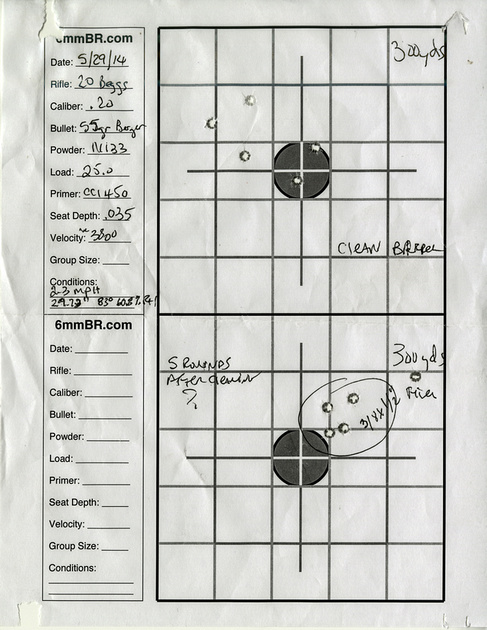 6mmBR.com
Date: 5/29/14
Rifle: 20 Beggs
Caliber: .20
Bullet: 55gr Berger
Powder: N133
Load: 25.0
Primer: CCI 450
Seat Depth: .035
Velocity: ~3800
Group Size:
Conditions:
2-3 mpH
29.72" 83°
300yds
CLEAN BARREL
6mmBR.com
Date:
Rifle:
Caliber:
Bullet:
Powder:
Load:
Primer:
Seat Depth:
Velocity:
Group Size:
Conditions:
5 ROUNDS
AFTER
?
300yds
3/4 x 1/2